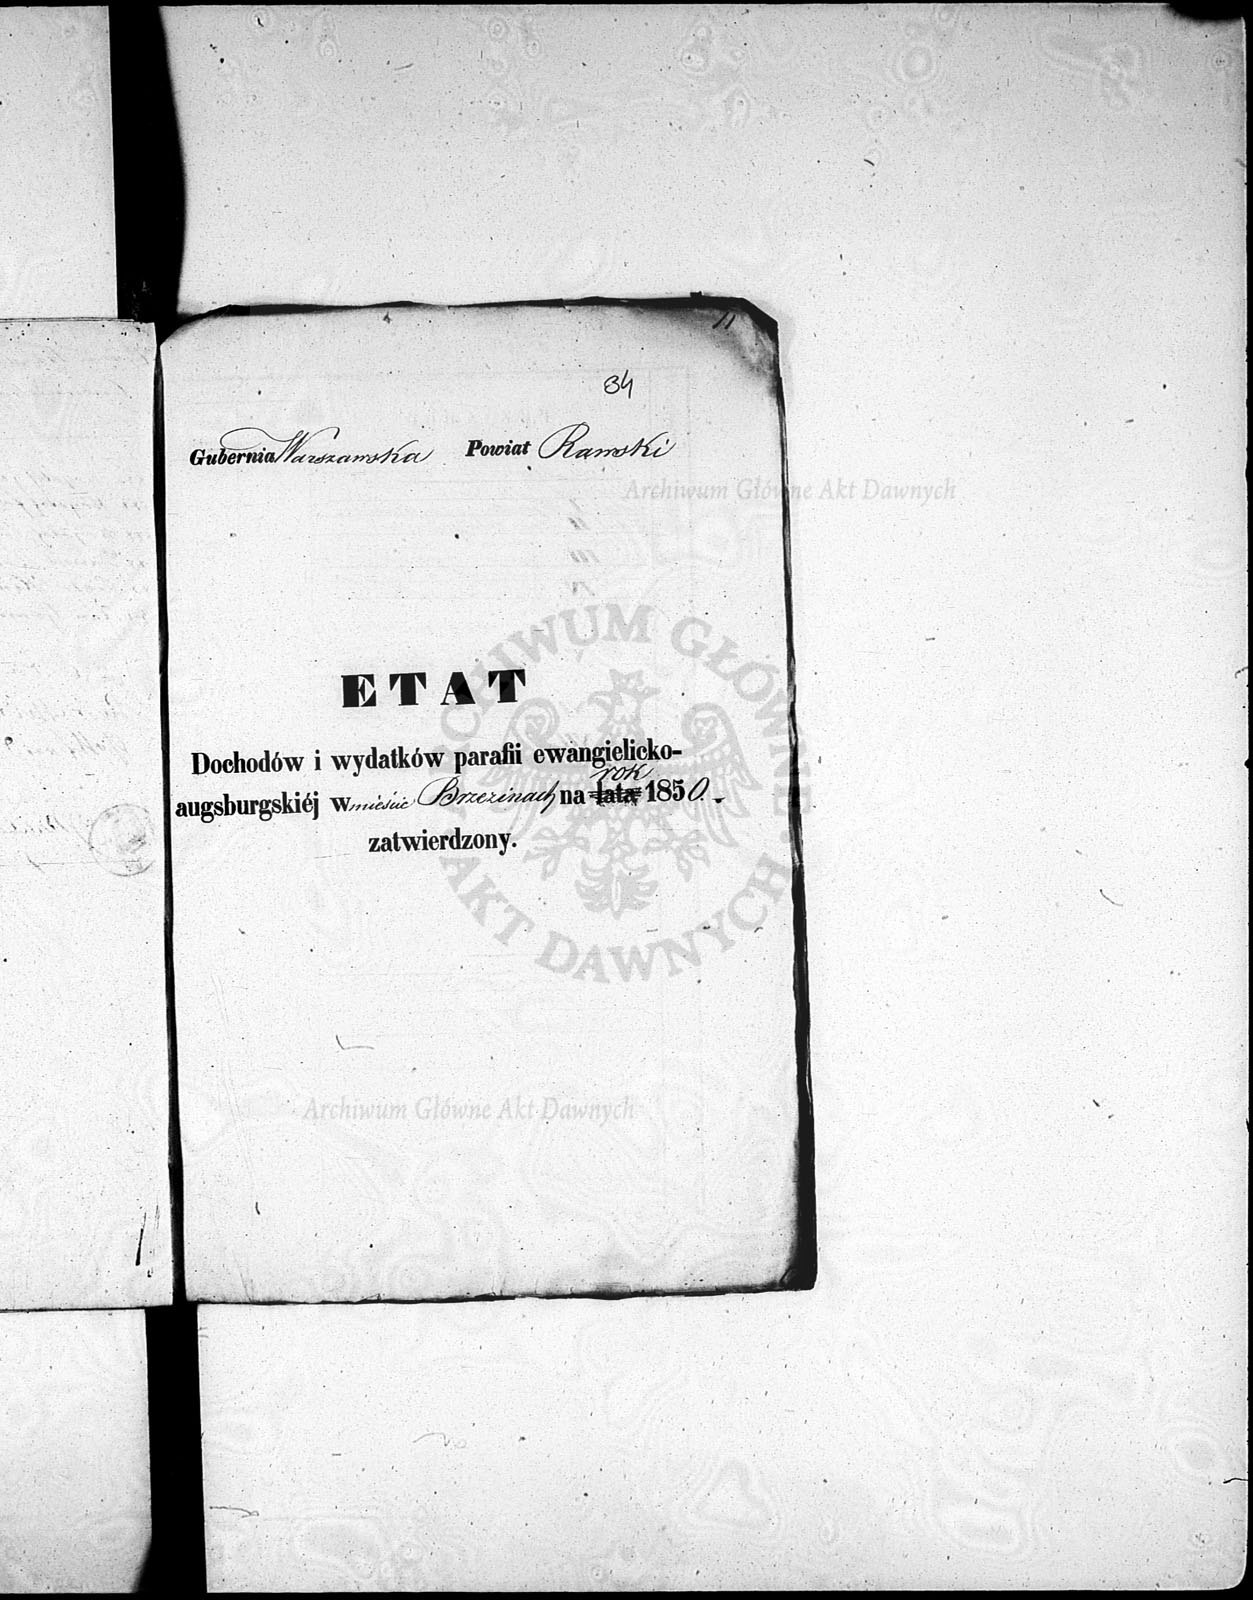 11
34
Gubernia Warszawska Powiat Rawski
Archiwum Główne Akt Dawnych
ETAT
Dochodów i wydatków parafii ewangielicko-
rok
augsburgskiéj w mieście Brzezinach na lata 1850.
zatwierdzony.
ARCHIWUM GŁÓWNE AKT DAWNYCH
Archiwum Główne Akt Dawnych